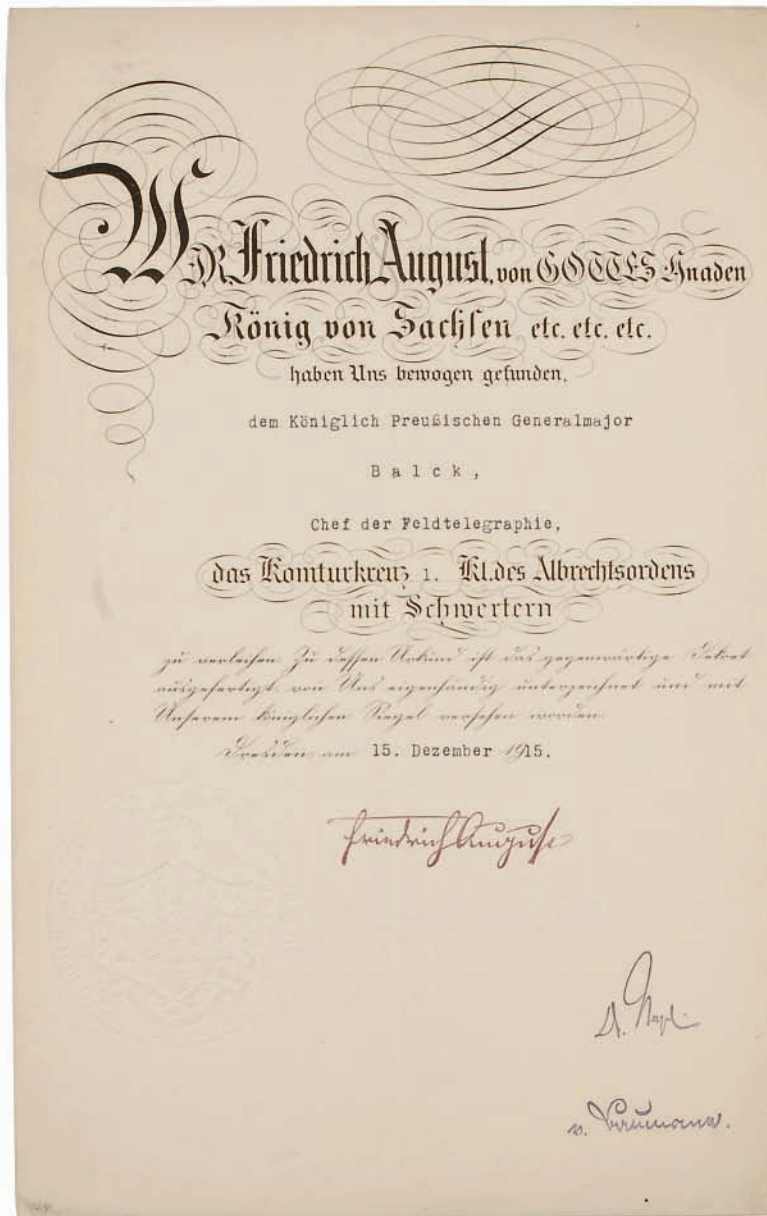 WIR, Friedrich August, von GOTTES Gnaden
König von Sachsen etc. etc. etc.
haben Uns bewogen gefunden,
dem Königlich Preußischen Generalmajor
Balck,
Chef der Feldtelegraphie,
das Komturkreuz 1. Kl. des Albrechtsordens
mit Schwertern
zu verleihen. Zu dessen Urkund ist das gegenwärtige Dekret
ausgefertigt, von Uns eigenhändig unterzeichnet und mit
Unserem königlichen Siegel versehen worden.
Dresden, am 15. Dezember 1915.
Friedrich August